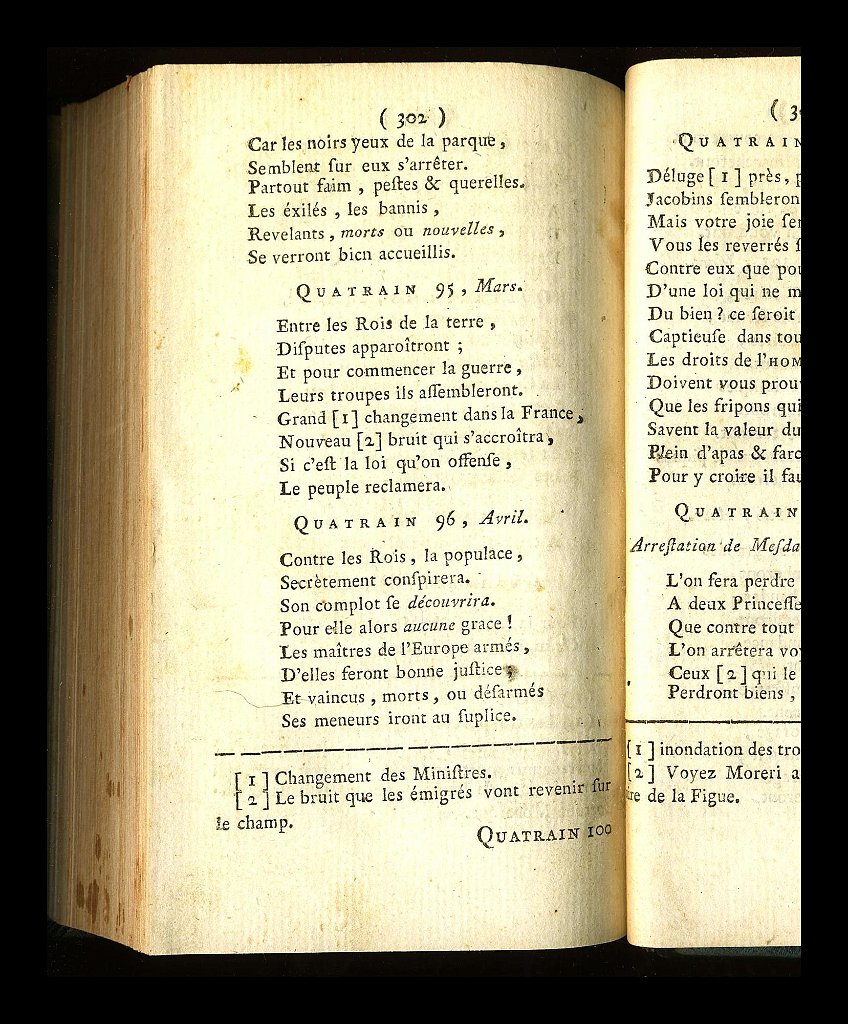 ( 302 )
Car les noirs yeux de la parque,
Semblent ſur eux s'arrêter.
Partout faim, peſtes & querelles.
Les éxilés, les bannis,
Revelants, morts ou nouvelles,
Se verront bien accueillis.
QUATRAIN 95, Mars.
Entre les Rois de la terre,
Diſputes apparoîtront ;
Et pour commencer la guerre,
Leurs troupes ils aſſembleront.
Grand [1] changement dans la France,
Nouveau [2] bruit qui s'accroîtra,
Si c'eſt la loi qu'on offenſe,
Le peuple reclamera.
QUATRAIN 96, Avril.
Contre les Rois, la populace,
Secrètement conſpirera.
Son complot ſe découvrira.
Pour elle alors aucune grace !
Les maîtres de l'Europe armés,
D'elles feront bonne juſtice ;
Et vaincus, morts, ou déſarmés
Ses meneurs iront au ſuplice.
[1] Changement des Miniſtres.
[2] Le bruit que les émigrés vont revenir ſur
le champ.
QUATRAIN 100
( 3
QUATRAIN
Déluge [1] près,
Jacobins
Mais votre joie
Vous les reverrés
Contre eux que
D'une loi qui ne
Du bien ? ce ſeroit
Captieuſe dans
Les droits de
Doivent vous
Que les fripons qui
Savent la valeur du
Plein d'apas &
Pour y croire il
QUATRAIN
Arreſtation de
L'on ſera perdre
A deux
Que contre tout
L'on arrêtera
Ceux [2] qui le
Perdront biens,
[1] inondation des
[2] Voyez Moreri
de la Figue.